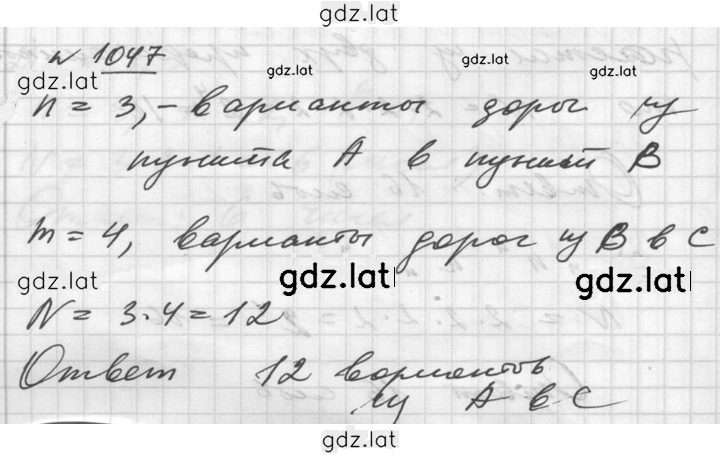 gdz.lat
№ 1047
gdz.lat gdz.lat gdz.lat
n = 3, - варианты дорог из
пункта А в пункт В
m = 4, варианты дорог из В в С
gdz.lat gdz.lat gdz.lat
N = 3·4 = 12
Ответ 12 вариантов
из А в С
gdz.lat